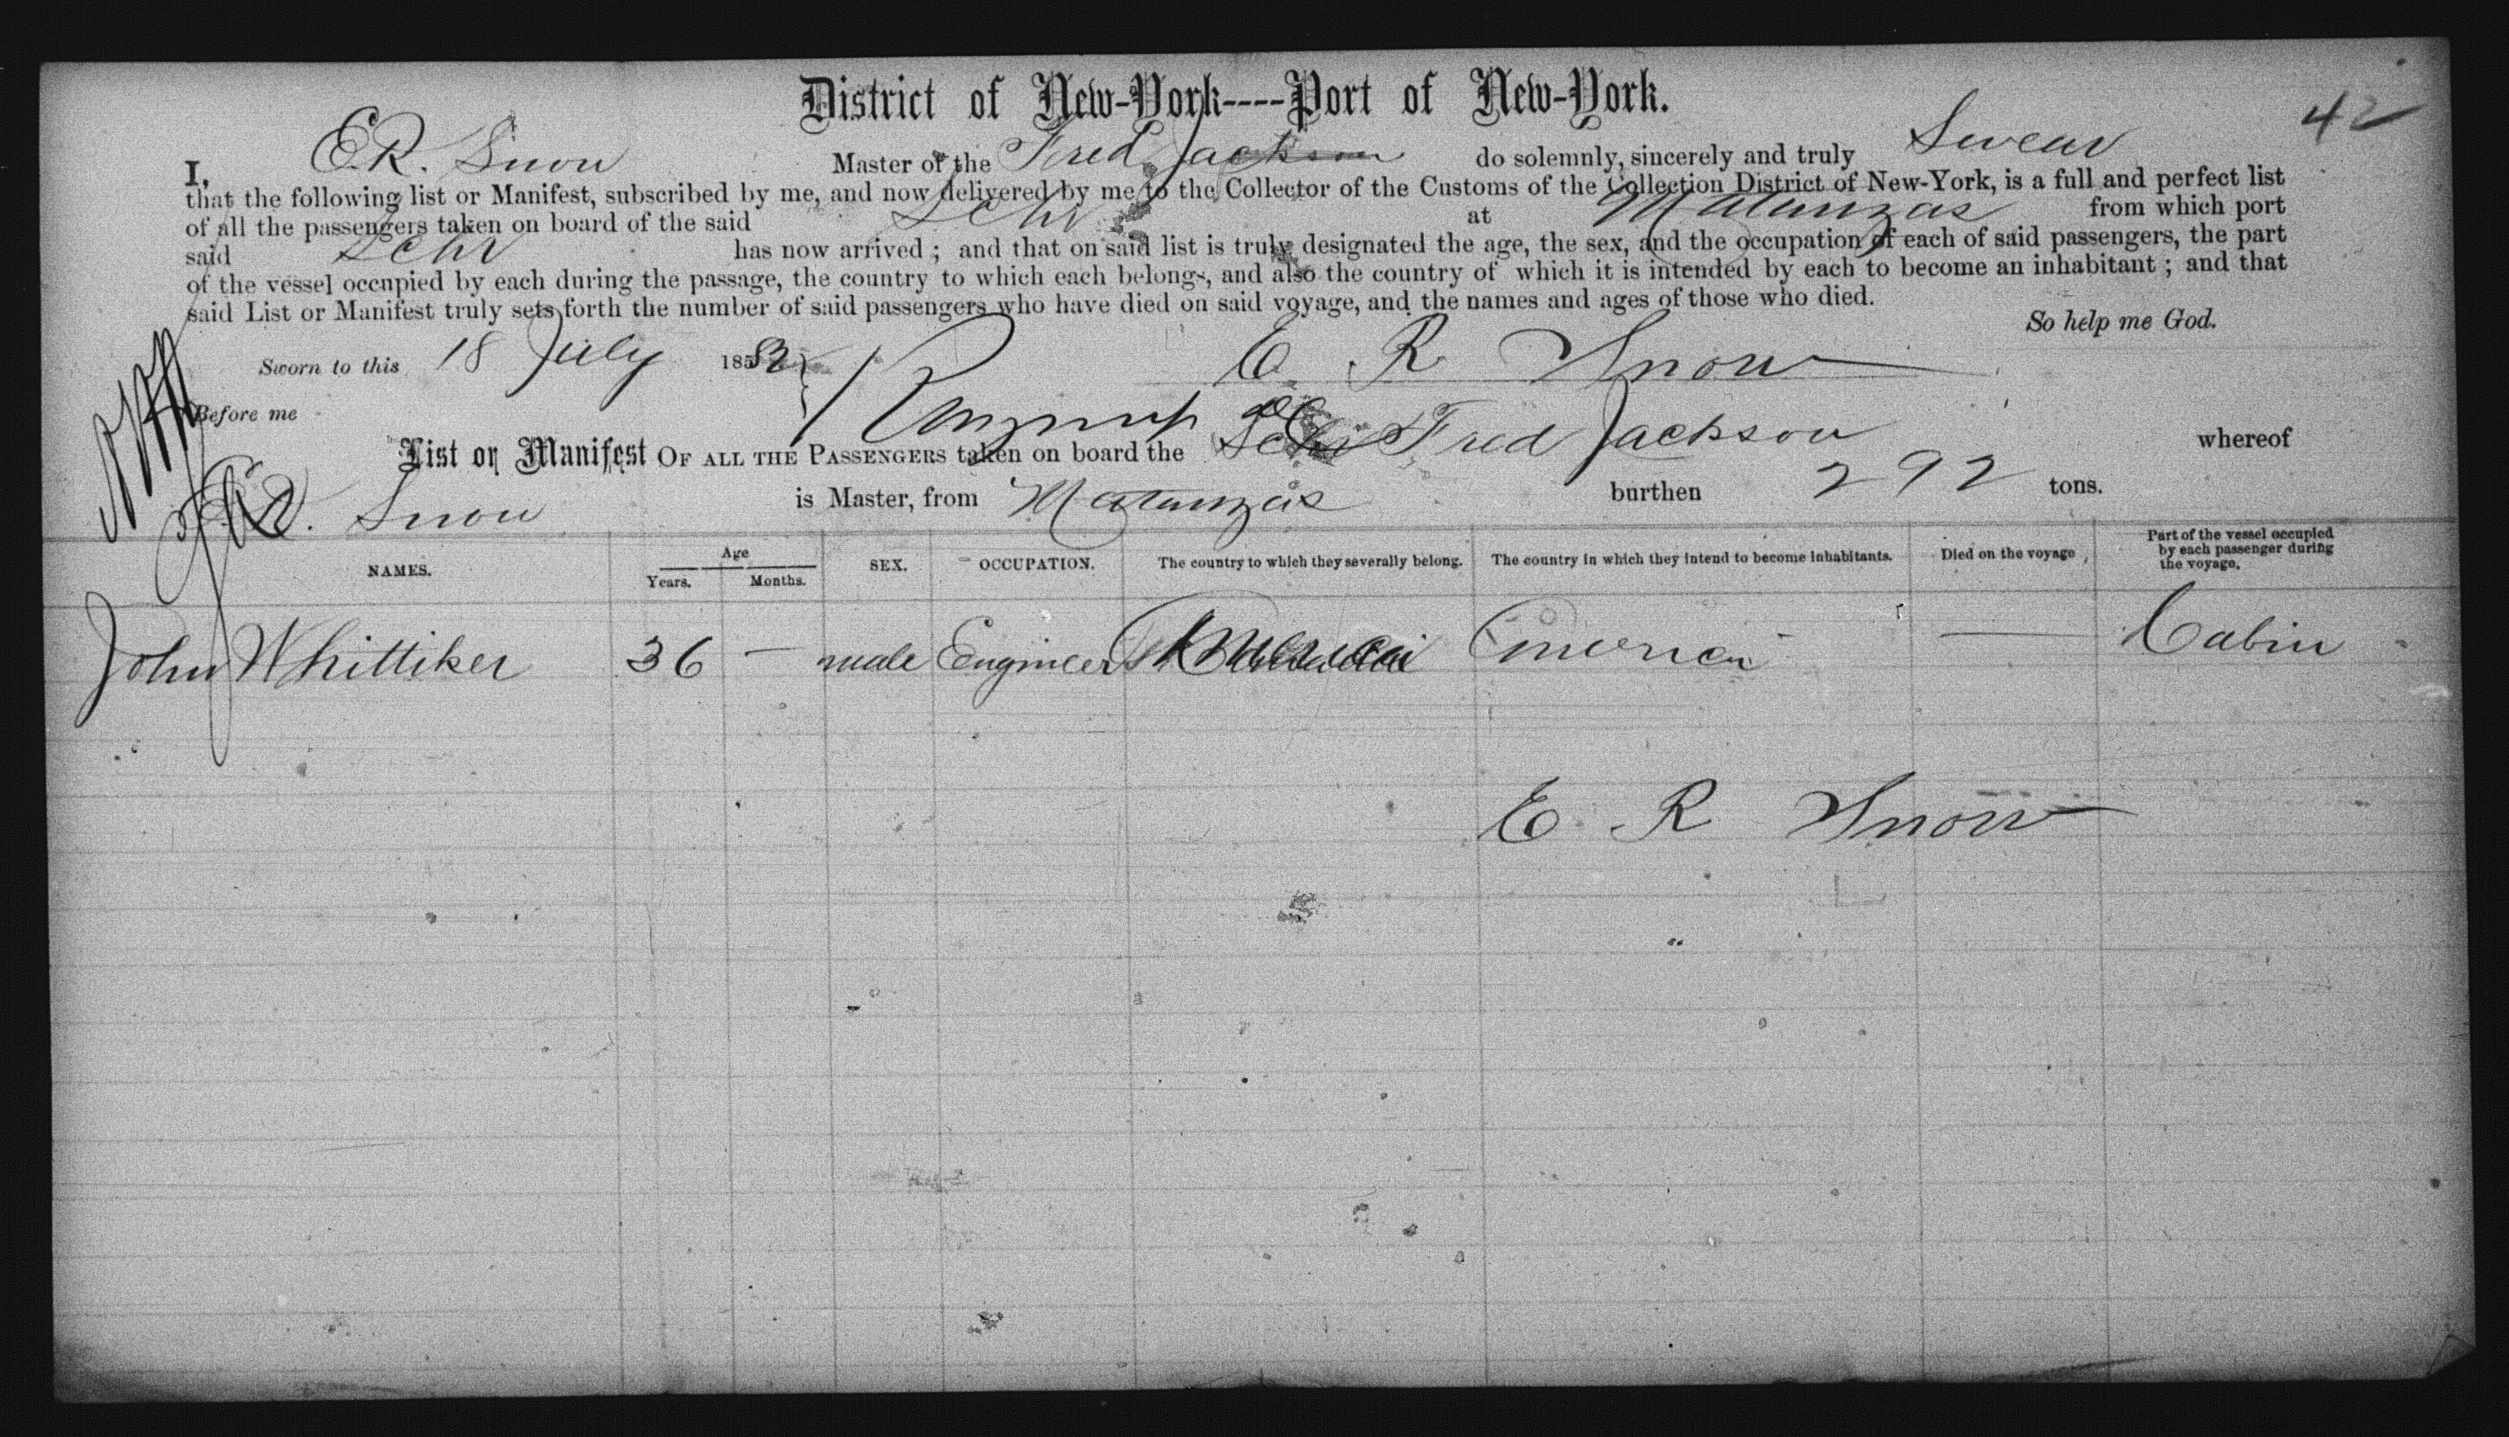 District of New-York----Port of New-York.
42
I, E.R. Snow Master of the Fred Jackson do solemnly, sincerely and truly Swear
that the following list or Manifest, subscribed by me, and now delivered by me to the Collector of the Customs of the Collection District of New-York, is a full and perfect list
of all the passengers taken on board of the said Schr at Matanzas from which port
said Schr has now arrived ; and that on said list is truly designated the age, the sex, and the occupation of each of said passengers, the part
of the vessel occupied by each during the passage, the country to which each belongs, and also the country of which it is intended by each to become an inhabitant ; and that
said List or Manifest truly sets forth the number of said passengers who have died on said voyage, and the names and ages of those who died.
So help me God.
Sworn to this 18 July E R Snow
Before me
List or Manifest OF ALL THE PASSENGERS taken on board the Schr Fred Jackson whereof
E.R. Snow is Master, from Matanzas burthen 292 tons.
NAMES. Age Years. Months. SEX. OCCUPATION. The country to which they severally belong. The country in which they intend to become inhabitants. Died on the voyage Part of the vessel occupied by each passenger during the voyage.
John Whittiker 36 — male Engineer America — Cabin
E R Snow